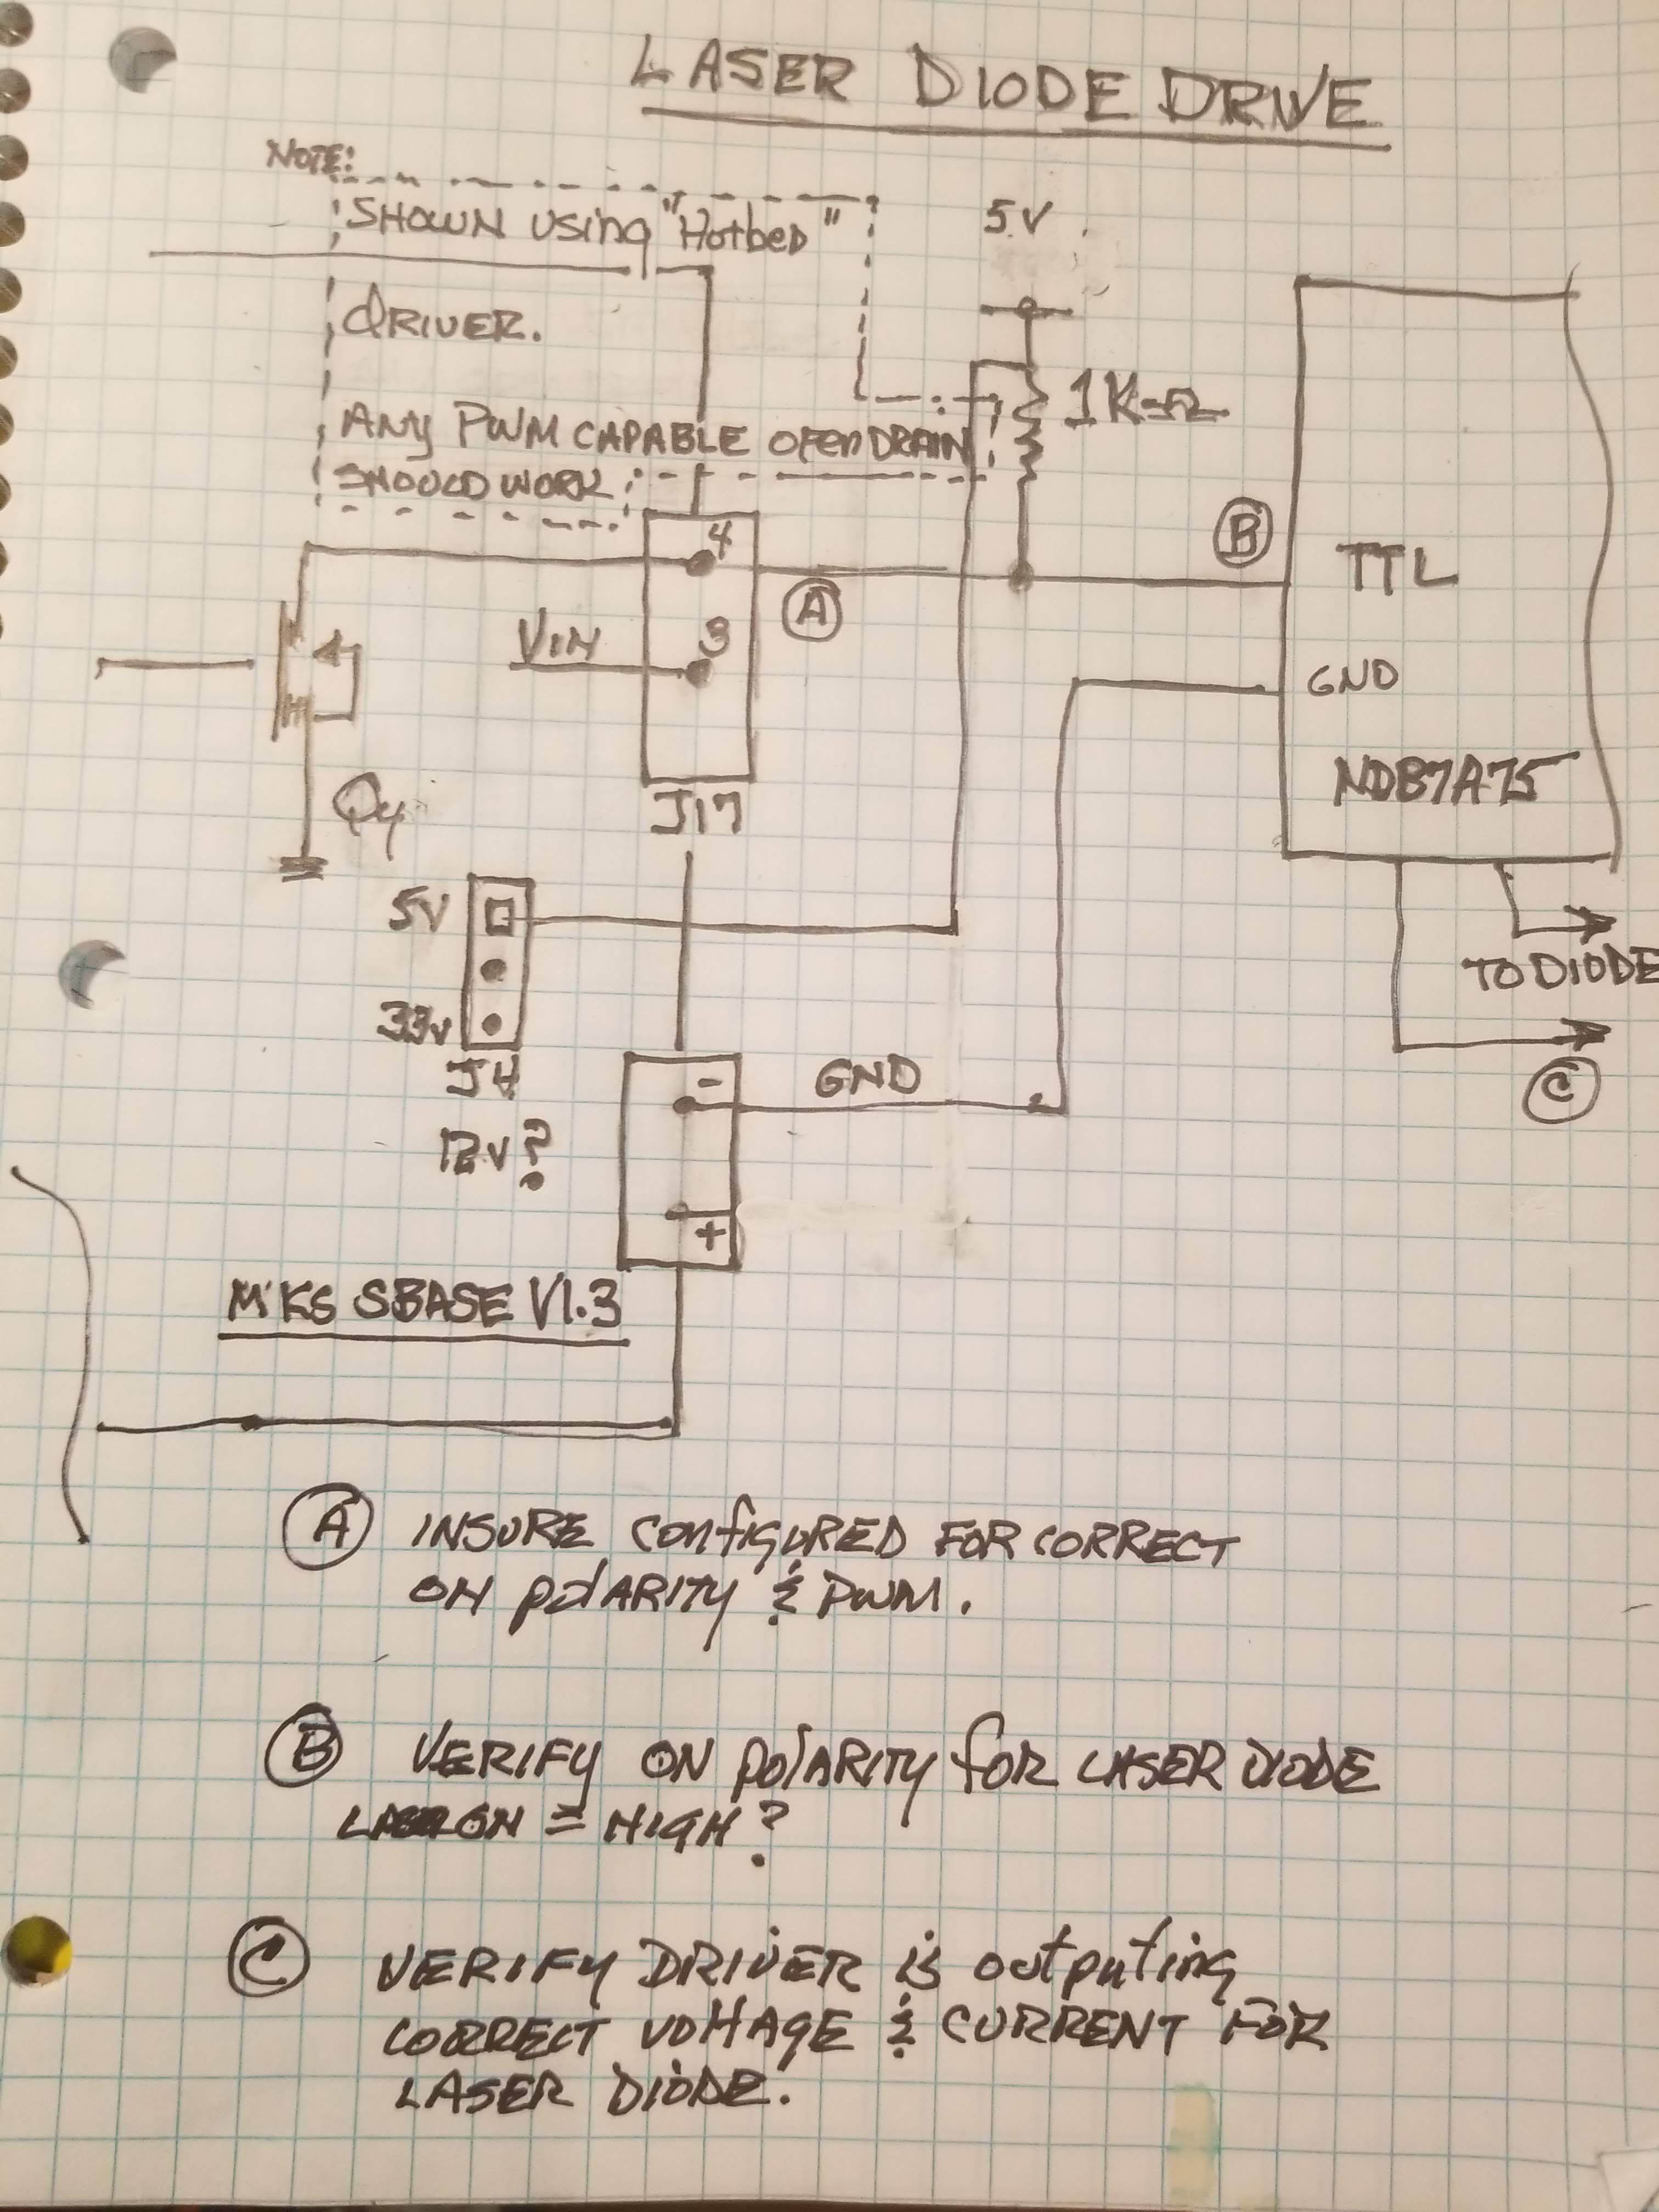 LASER DIODE DRIVE
NOTE:
SHOWN USING "HotbED"
DRIVER.
ANY PWM CAPABLE OPEN DRAIN
SHOULD WORK
5V
1K Ω
4
3
VIN
A
B
TTL
GND
NDB7A75
Q4
J17
5V
33V
J4
12V?
TO DIODE
C
-
GND
+
MKS SBASE V1.3
A INSURE CONFIGURED FOR CORRECT
ON POLARITY & PWM.
B VERIFY ON POLARITY FOR LASER DIODE
LASER ON = HIGH?
C VERIFY DRIVER is outputing
CORRECT VOLTAGE & CURRENT FOR
LASER DIODE.